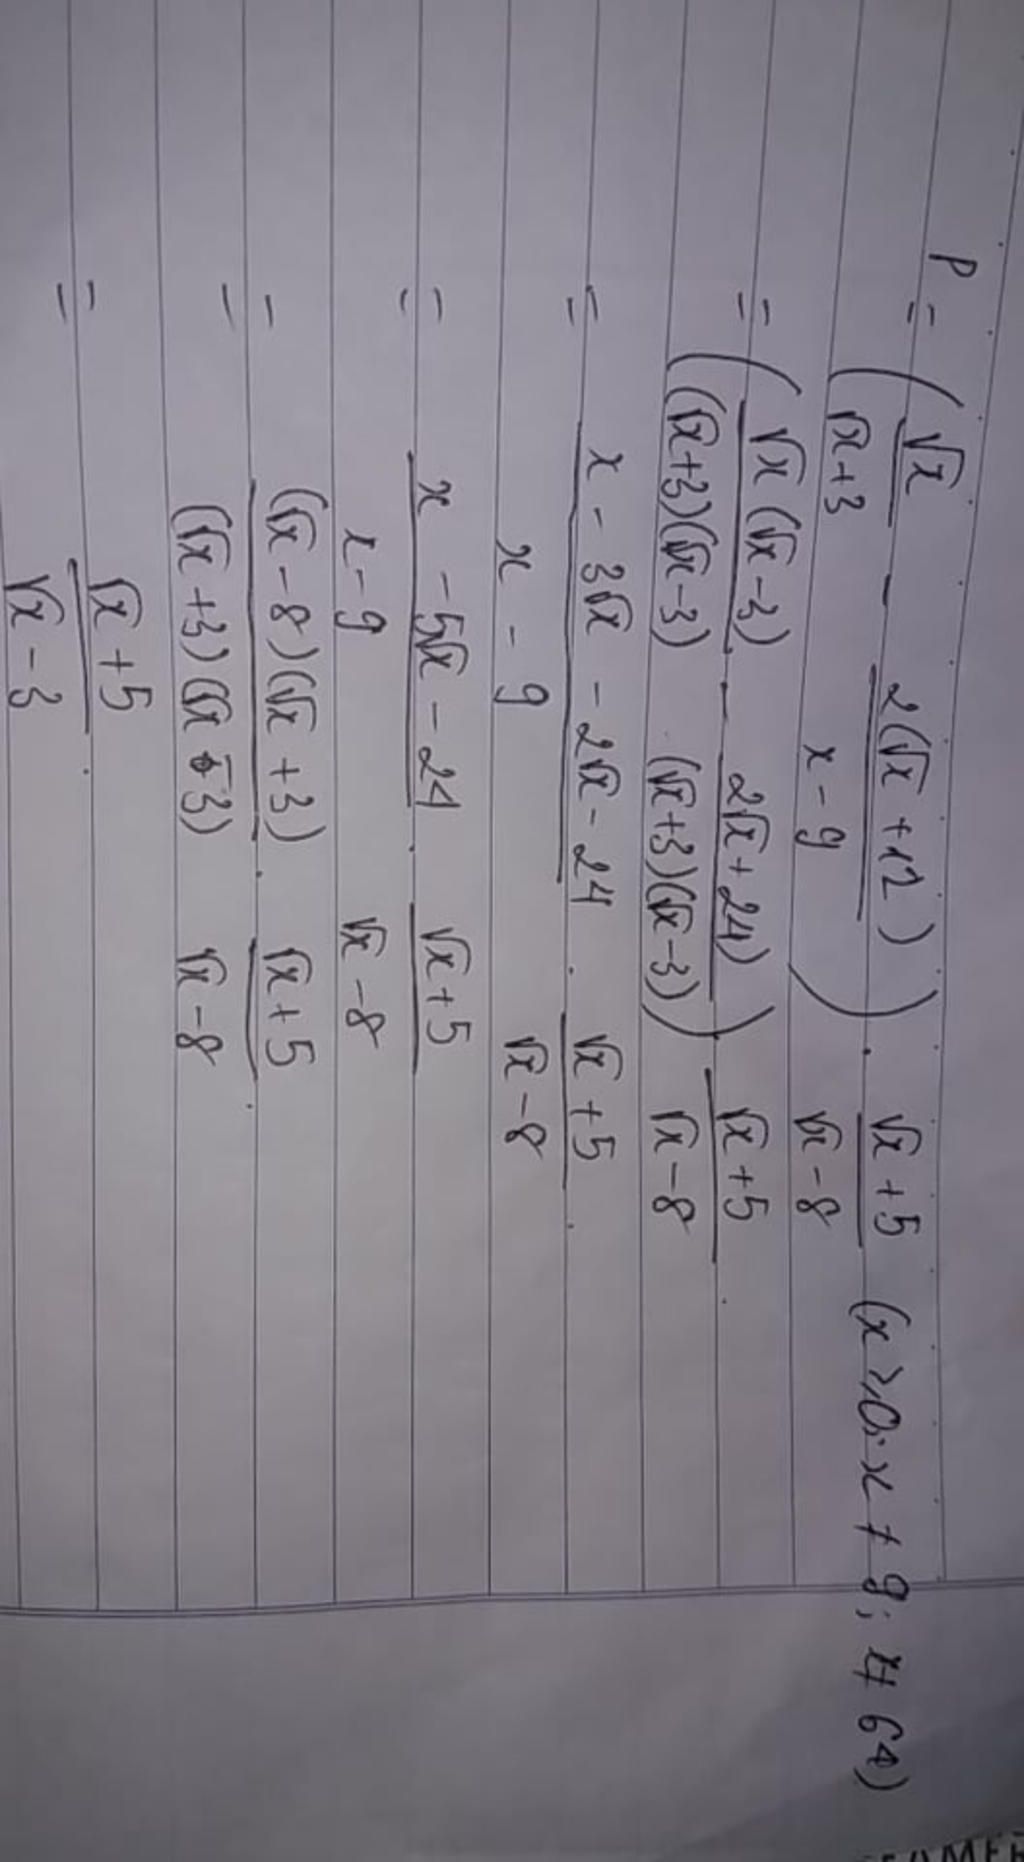 P = ( √x / (√x+3) - 2(√x+12) / (x-9) ) . (√x+5) / (√x-8) (x ≥ 0; x ≠ 9; x ≠ 64)
= ( √x(√x-3) / (√x+3)(√x-3) - (2√x+24) / (√x+3)(√x-3) ) . (√x+5) / (√x-8)
= (x - 3√x - 2√x - 24) / (x - 9) . (√x+5) / (√x-8)
= (x - 5√x - 24) / (x-9) . (√x+5) / (√x-8)
= (√x-8)(√x+3) / (√x+3)(√x-3) . (√x+5) / (√x-8)
= (√x+5) / (√x-3)